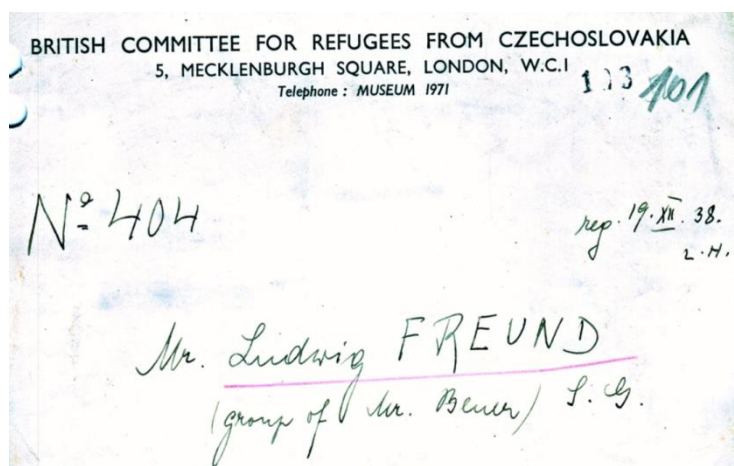 BRITISH COMMITTEE FOR REFUGEES FROM CZECHOSLOVAKIA
5, MECKLENBURGH SQUARE, LONDON, W.C.I
Telephone : MUSEUM 1971
101
Nº 404
reg. 19. XII. 38.
L.H.
Mr. Ludwig FREUND
(group of Mr.) S. G.